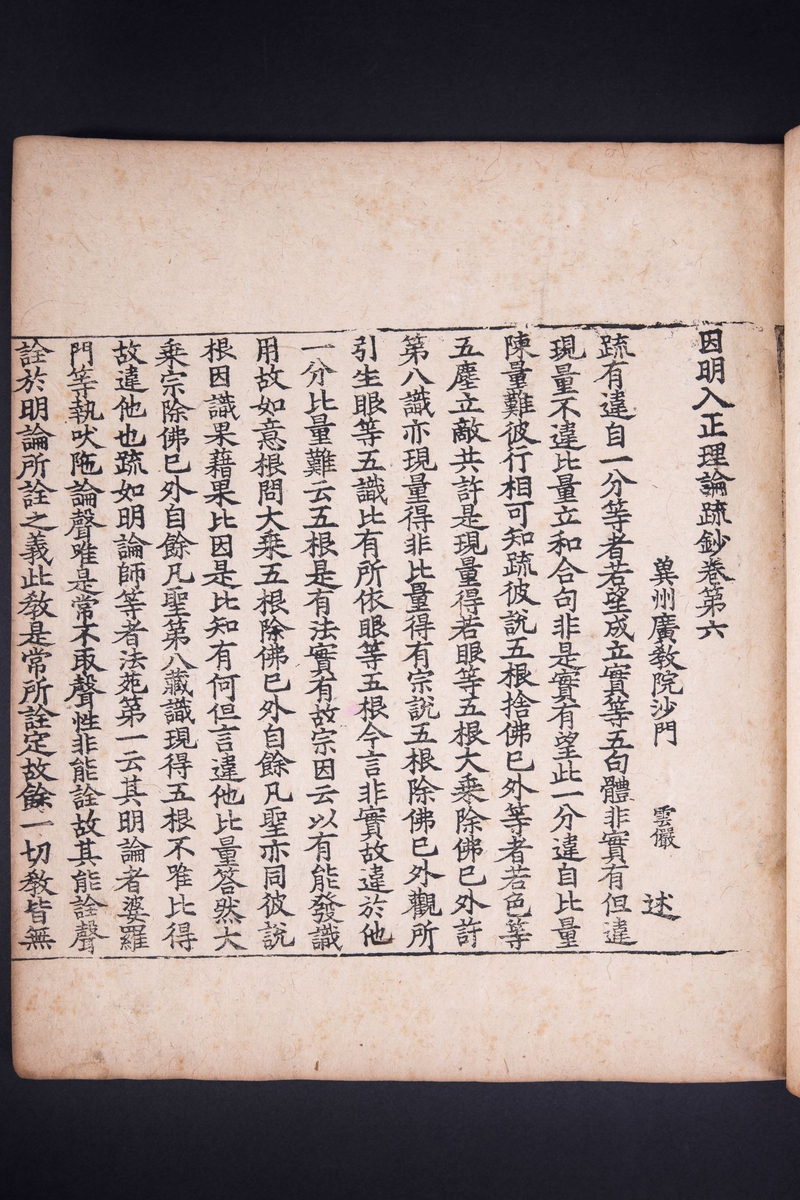 因明入正理論疏鈔卷第六
冀州廣教院沙門 雲儼 述
疏有違自一分等者若望成立實等五句體非實有但違
現量不違比量立和合句非是實有望此一分違自比量
陳量難彼行相可知疏彼說五根捨佛巳外等者若色等
五塵立敵共許是現量得若眼等五根大乗除佛巳外許
第八識亦現量得非比量得有宗說五根除佛巳外觀所
引生眼等五識比有所依眼等五根今言非實故違於他
一分比量難云五根是有法實有故宗因云以有能發識
用故如意根問大乗五根除佛巳外自餘凡聖亦同彼說
根因識果藉果比因是比知有何但言違他比量答然大
乗宗除佛巳外自餘凡聖第八藏識現得五根不唯比得
故違他也疏如明論師等者法苑第一云其明論者婆羅
門等執吠陁論聲唯是常不取聲性非能詮故其能詮聲
詮於明論所詮之義此教是常所詮定故餘一切教皆無